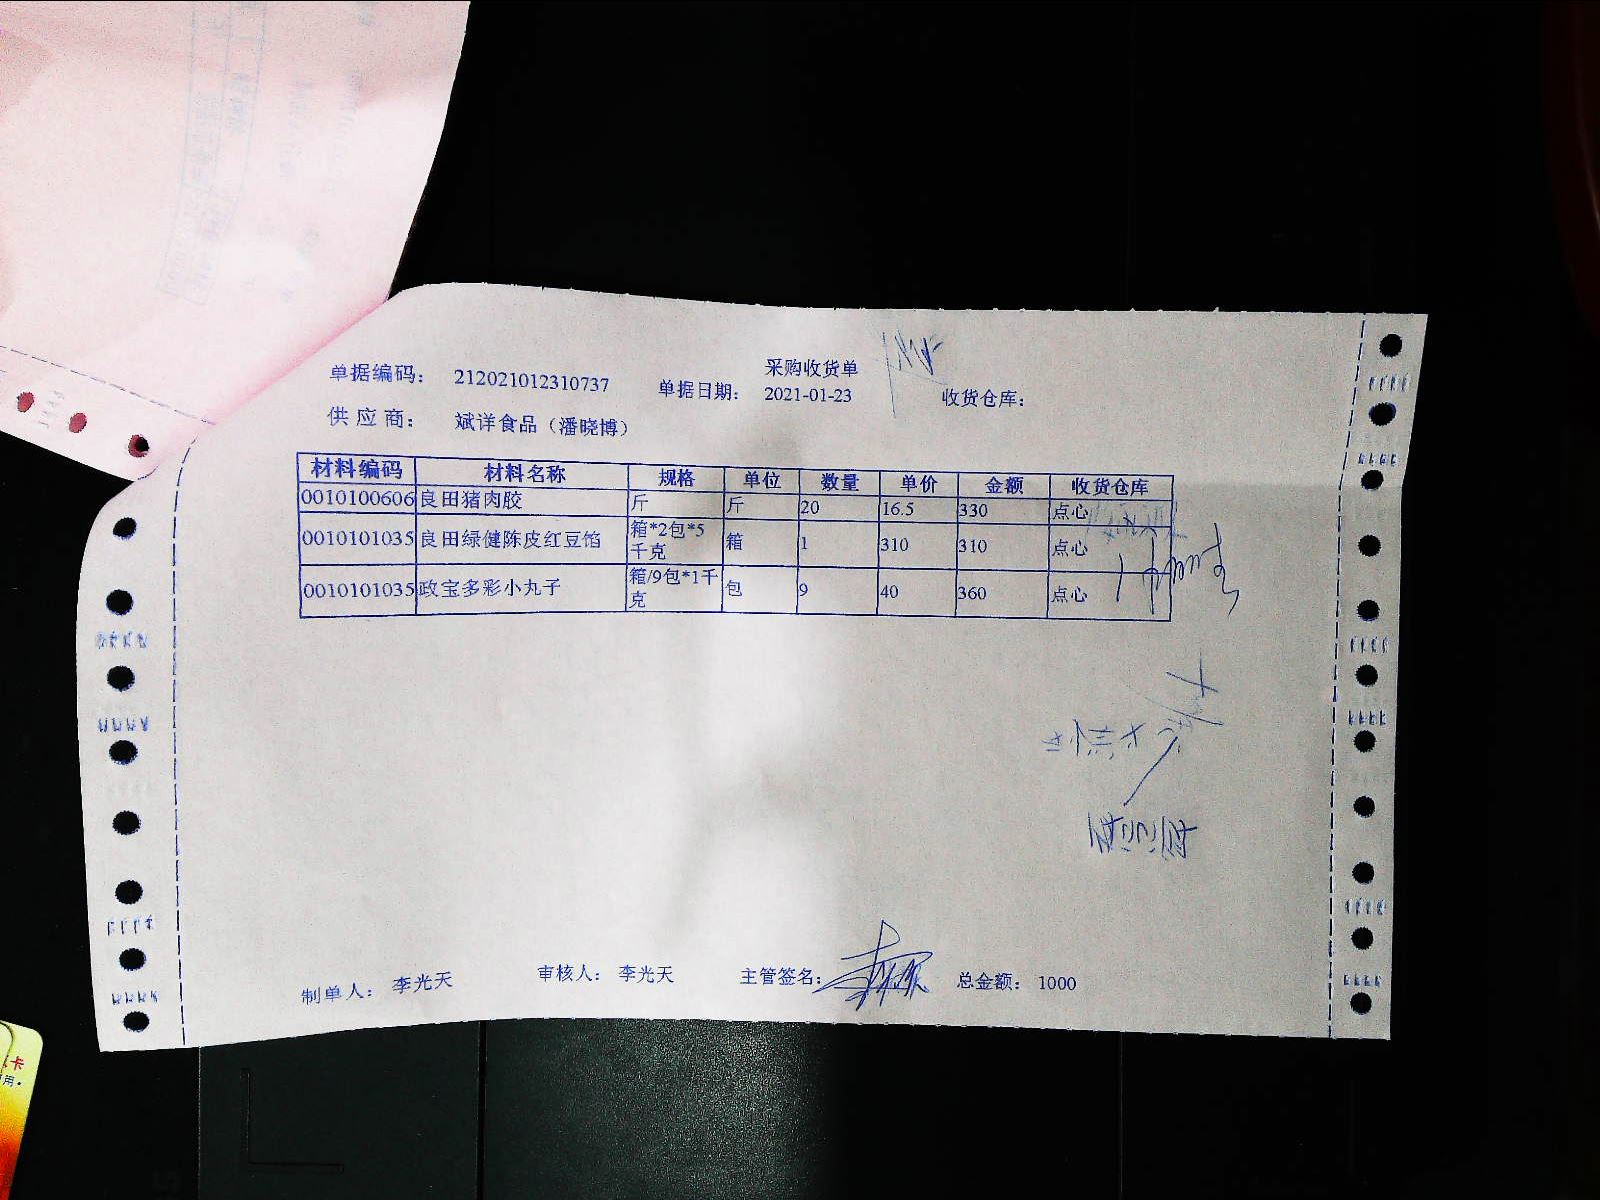 采购收货单
单据编码： 212021012310737 单据日期： 2021-01-23 收货仓库：
供应商： 斌洋食品（潘晓博）
材料编码 材料名称 规格 单位 数量 单价 金额 收货仓库
0010100606 良田猪肉胶 斤 斤 20 16.5 330 点心
0010101035 良田绿健陈皮红豆馅 箱*2包*5千克 箱 1 310 310 点心
0010101035 政宝多彩小丸子 箱/9包*1千克 包 9 40 360 点心
制单人： 李光天 审核人： 李光天 主管签名： 总金额： 1000
卡
用